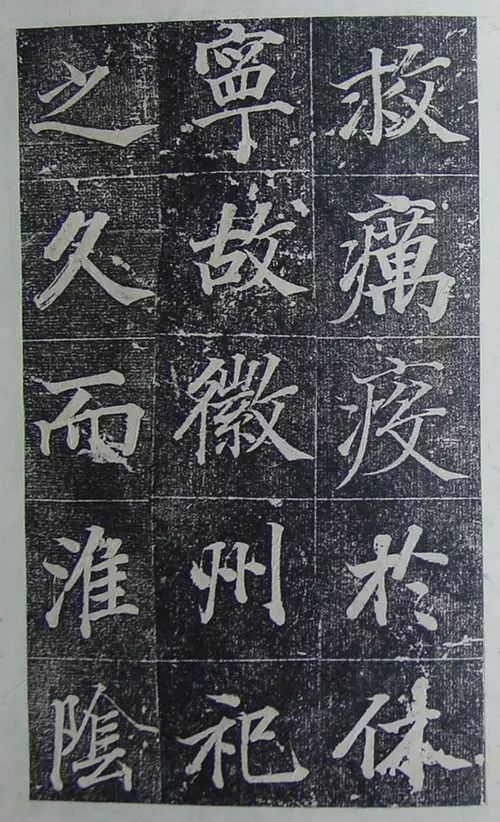 救癘疫於休
寧故徽州祀
之久而淮陰